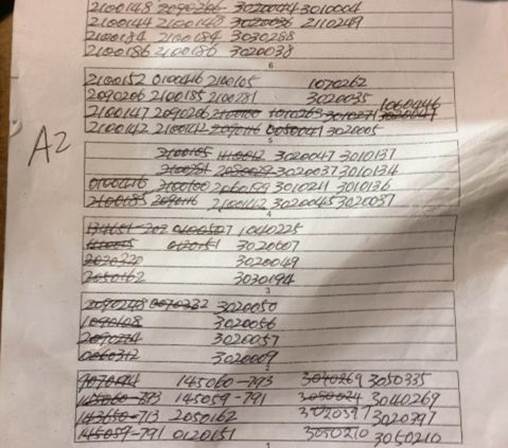 2100148 2090266 3020044 3010004
2100144 2100148 3020036 2110249
2100184 2100184 3030288
2100186 2100186 3020038
6
2100152 0100416 2100105 1070262
2090206 2100185 2100781 3020035
2100147 2090206 2100100 1010263 3010271 1060446
2100142 2100142 2090116 0050041 3020005
A2
5
2100105 3020047 3010137
3020037 3010134
0100416 2100100 2060159 3010211 3010136
2100185 2090116 2100142 3020045 3020037
4
0100507 1040225
0120151 3020007
2020320 3020049
2050162 3030194
3
0070232 3020050
1090108 3020056
2090274 3020057
0060312 3020009
2
9070194 145060-793 3040269 3050335
145060-793 145059-791 3050024 3040269
143650-713 2050162 3020397 3020397
145059-791 0120151 3050210 3050210
1